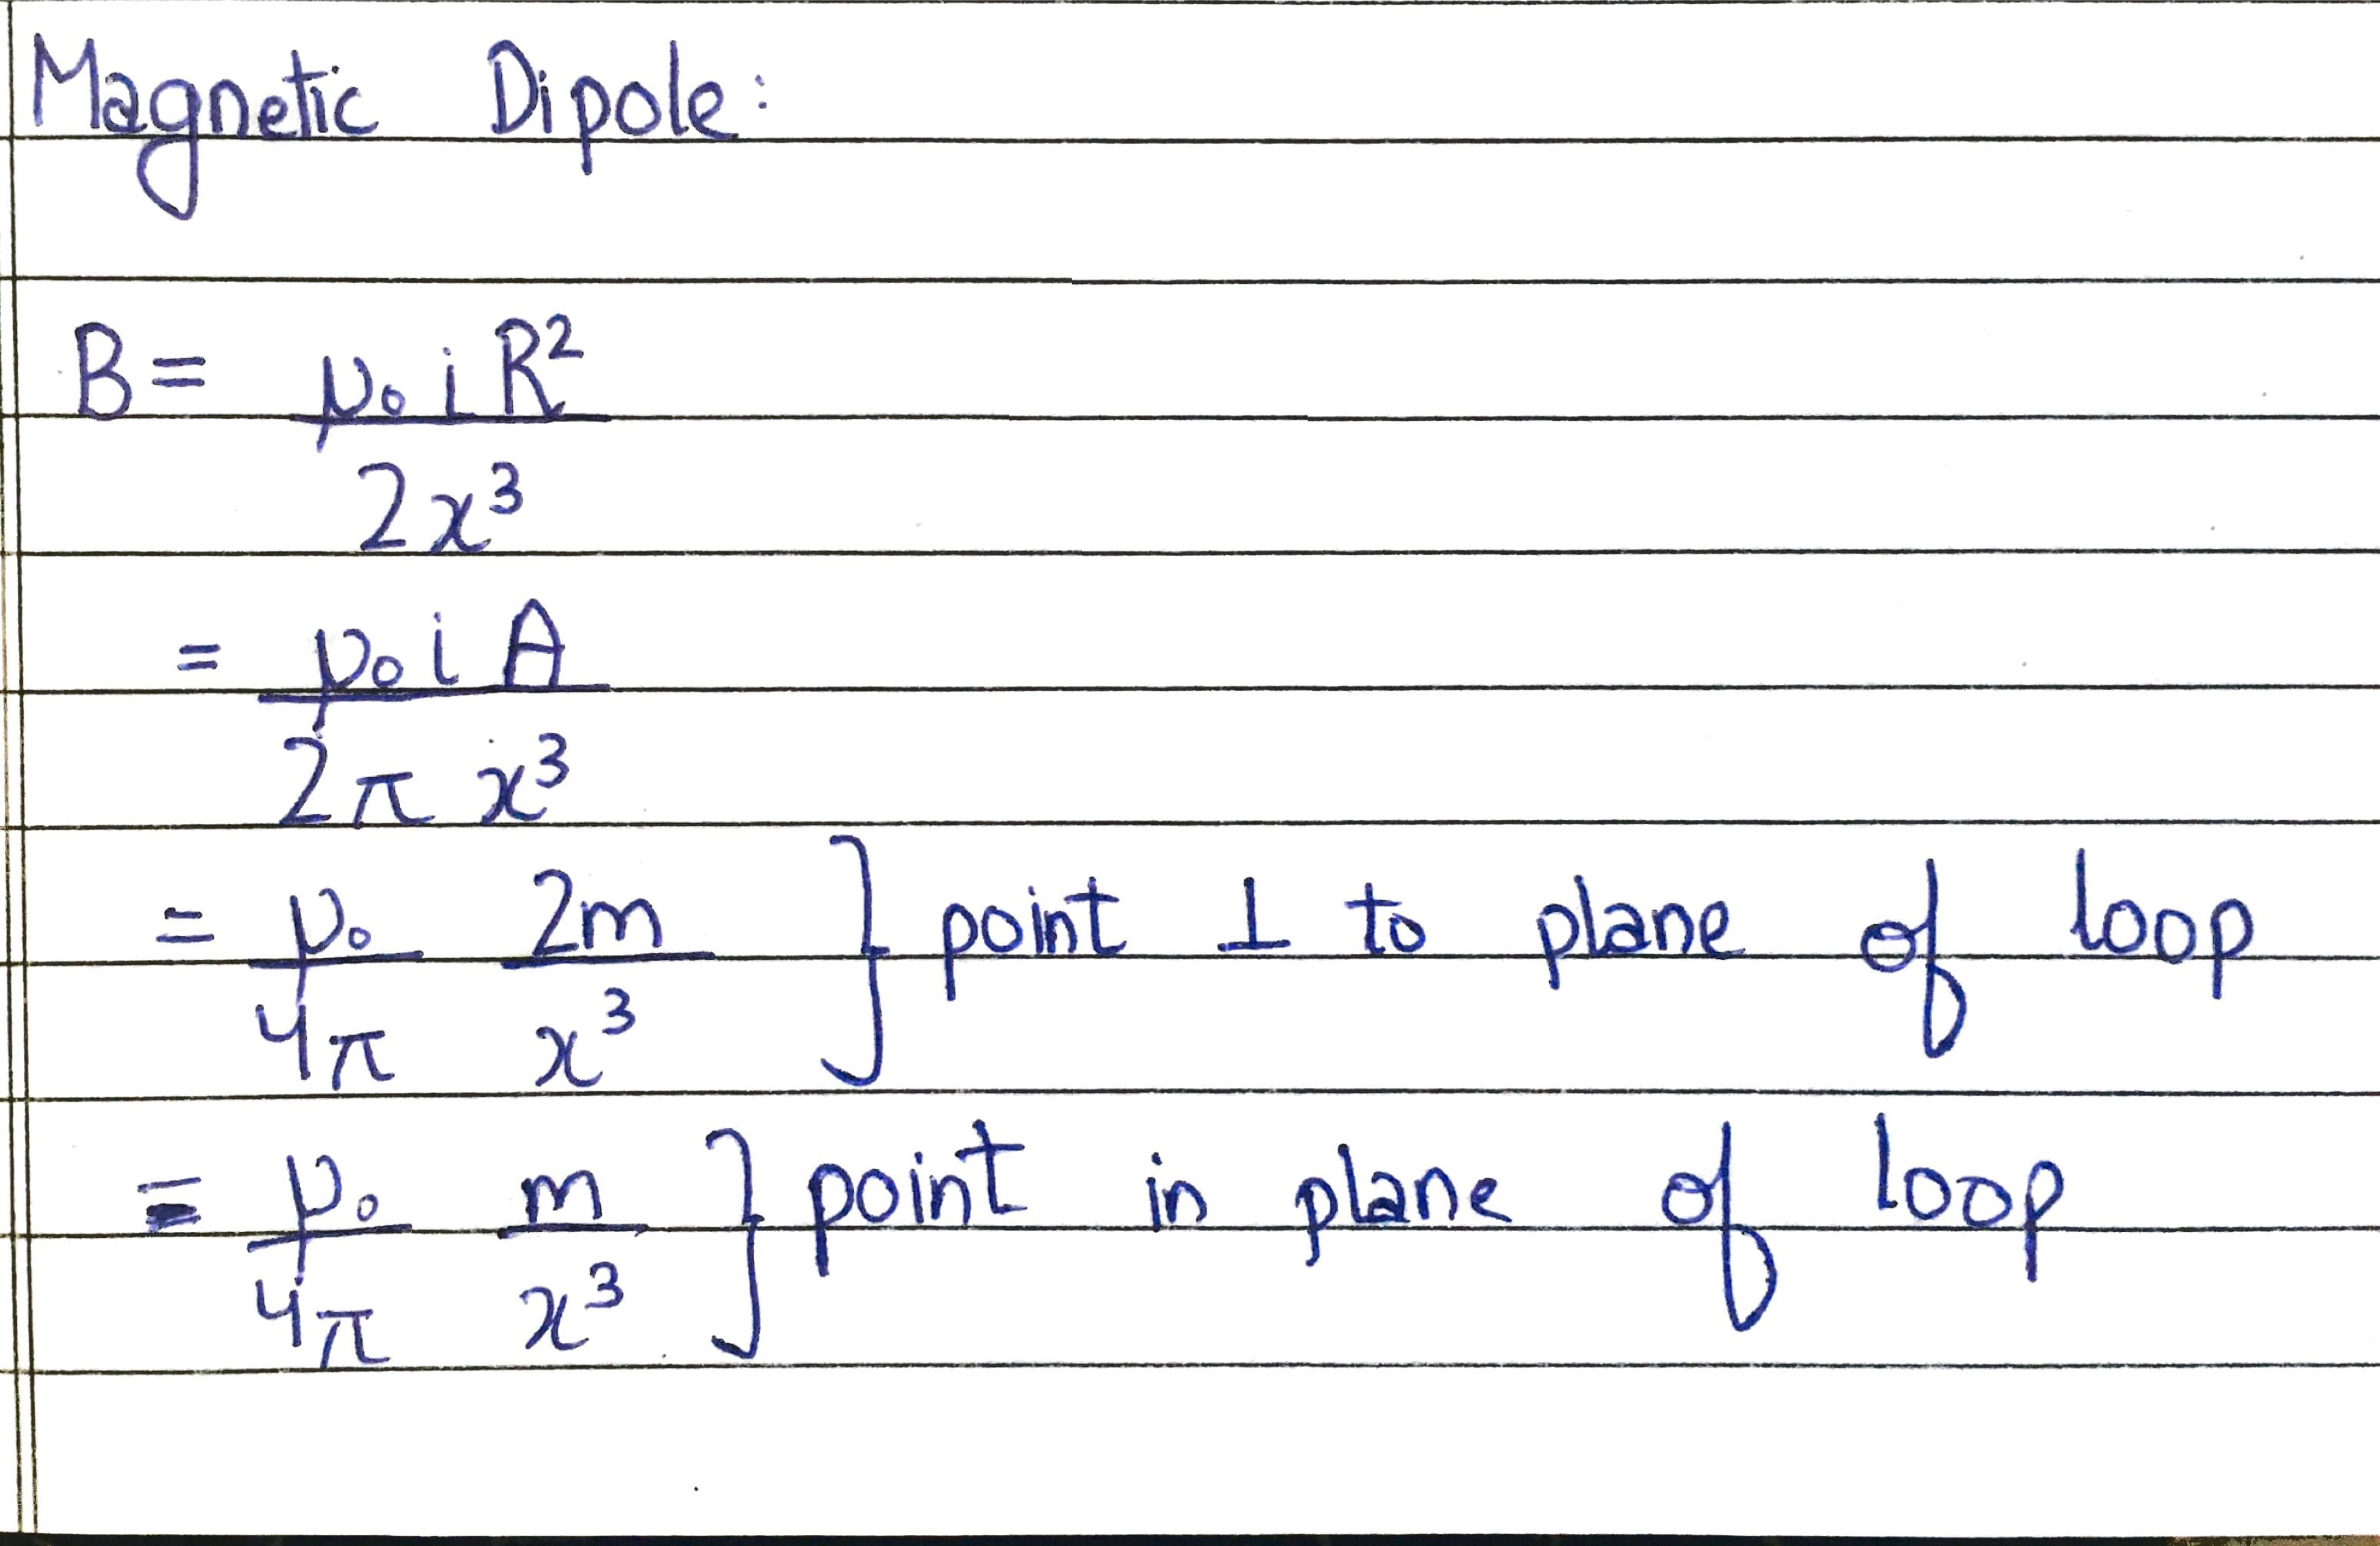 Magnetic Dipole:
B = μ₀ i R² / 2x³
= μ₀ i A / 2π x³
= μ₀/4π 2m/x³ } point ⊥ to plane of loop
= μ₀/4π m/x³ } point in plane of loop